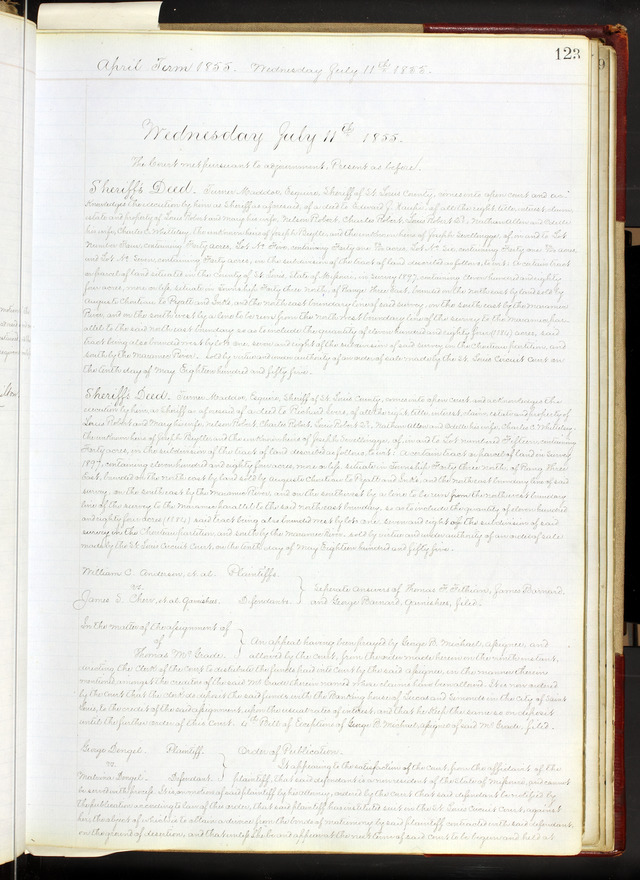 123
April Term 1855. Wednesday July 11th 1855.
Wednesday July 11th 1855.
The Court met pursuant to adjournment, Present as before.
Sheriff's Deed. Turner Maddox, Esquire, Sheriff of St. Louis County, comes into open court and ac-
knowledges the execution by him as Sheriff as aforesaid, of a deed to Edward J. of all the right, title, interest, claim,
estate and property of Louis Robert and Mary his wife, Nelson Robert, Charles Robert, Louis Robert Jr.,
his wife, Charles Whittelsey, the unknown heirs of Joseph and the unknown heirs of Joseph of in and to Lot
Number Four, containing Forty acres, Lot No. Five, containing Forty one acres Lot No. Six, containing Forty acres
and Lot No. Seven, containing Forty acres, in the subdivision of the tract of land described as follows, to wit: A certain tract
or parcel of land situated in the County of St. Louis, State of Missouri, in Survey 1897, containing eleven hundred and eighty
four acres, more or less, situate in Township Forty three north, of Range three East, bounded on the north east by land sold by
Auguste Chouteau to Pyatt and and the north east boundary line of said survey, on the south east by the Maramec
River, and on the south west by a line to be run from the north west boundary line of the survey to the Maramec paral-
lel to the said north east boundary so as to include the quantity of eleven hundred and eighty four (1184) acres, said
tract being also bounded west by lots one, seven and eight of the subdivision of said survey in the Chouteau partition, and
south by the Maramec River. Sold by virtue and under authority of an order of sale made by the St. Louis Circuit Court on
the tenth day of May Eighteen hundred and fifty five.
Sheriff's Deed. Turner Maddox, Esquire, Sheriff of St. Louis County, comes into open court and acknowledges the
execution by him, as Sheriff as aforesaid of a deed to Richard of all the right, title, interest, claim, estate and property of
Louis Robert and Mary his wife, Nelson Robert, Charles Robert, Louis Robert Jr., his wife, Charles Whittelsey,
the unknown heirs of Joseph and the unknown heirs of Joseph of in and to Lot numbered Fifteen containing
Forty acres, in the subdivision of the tract of land described as follows, to wit: A certain tract or parcel of land in Survey
1897, containing eleven hundred and eighty four acres, more or less, situate in Township Forty three north, of Range three
East, bounded on the north east by land sold by Auguste Chouteau to Pyatt and and the north east boundary line of said
survey, on the south east by the Maramec River, and on the south west by a line to be run from the north west boundary
line of the survey to the Maramec parallel to the said north east boundary, so as to include the quantity of eleven hundred
and eighty four acres (1184) said tract being also bounded west by lots one, seven and eight of the subdivision of said
survey in the Chouteau partition, and south by the Maramec River, sold by virtue and under authority of an order of sale
made by the St. Louis Circuit Court, on the tenth day of May Eighteen hundred and fifty five.
William C. Anderson, et al. Plaintiffs.
vs. Separate answers of Thomas F. James Barnard,
James S. Chew, et al. Garnishee. Defendants. and George Barnard, Garnishees, filed.
In the matter of the assignment of
of An appeal having been prayed by George B. Michael, assignee, and
Thomas McGrade. allowed by the court, from the order made herein on the ninth instant,
directing the Clerk of the court to distribute the funds paid into court by the said assignee, in the manner therein
mentioned, amongst the creditors of the said McGrade therein named whose claims have been allowed. It is now ordered
by the court that the clerk do deposit the said funds with the Banking house of Lucas and Simonds in the City of Saint
Louis, to the credit of the said assignment upon the usual rates of interest, and that he keep the same so on deposit
until the further order of this Court. Bill of Exceptions of George B. Michael, assignee of said McGrade, filed.
George Plaintiff. Order of Publication.
vs. It appearing to the satisfaction of the court, from the affidavit of the
Defendant. plaintiff, that said defendant is a non resident of the State of Missouri, and cannot
be served with process. It is, on motion of said plaintiff by his attorney, ordered by the court that said defendant be notified by
the publication according to law of this order, that said plaintiff has instituted suit in the St. Louis Circuit Court, against
her, the object of which is to obtain a divorce from the bonds of matrimony by said plaintiff contracted with said defendant,
on the ground of desertion, and that unless she be and appear at the next term of said court to be begun and held at